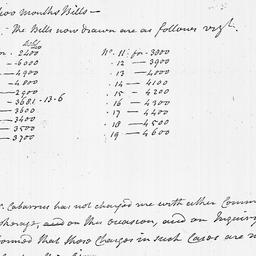 two months Bills —
. The Bills now drawn are as follows vizt.
Bills
. 2400 No. 11: for - 3800
— 6000 . 12 — 3900
— 4900 . 13 — 4000
— 4800 . 14 — 4100
— 2900 . 15 — 4200
— 3681 . 13 . 6 . 16 — 4300
— 3600 . 17 — 4400
— 3400 . 18 — 4500
— 3500 . 19 — 4600
— 3700
. Cabarrus has not charged me with either Comm
okerage, and on this occasion, and on Inquiry
formed that those Charges in such Cases are n